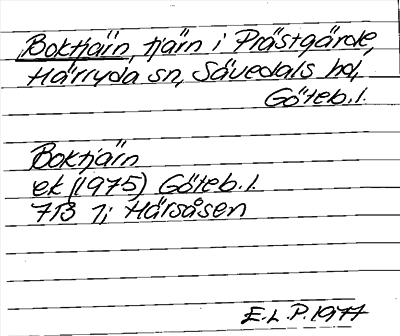 Boktjärn, tjärn i Prästgärde,
Härryda sn, Sävedals hd,
Göteb. l.
Boktjärn
ek (1975) Göteb. l.
7B 7i Härsåsen
E. L. P. 1977